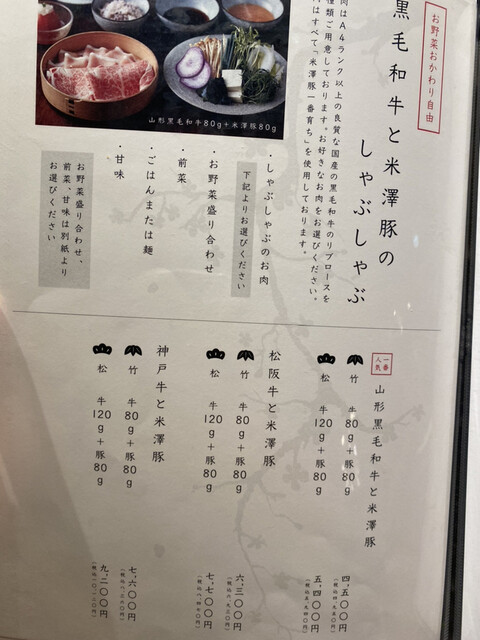 お野菜おかわり自由
黒毛和牛と米澤豚の
しゃぶしゃぶ
肉はA4ランク以上の良質な国産の黒毛和牛のリブロースを
種類ご用意しております。お好きなお肉をお選びください。
はすべて「米澤豚一番育ち」を使用しております。
山形黒毛和牛80g+米澤豚80g
・しゃぶしゃぶのお肉
下記よりお選びください
・お野菜盛り合わせ
・前菜
・ごはんまたは麺
・甘味
お野菜盛り合わせ、
前菜、甘味は別紙より
お選びください
一番人気
山形黒毛和牛と米澤豚
竹 牛80g+豚80g 四、五〇〇円
(税込四、九五〇円)
松 牛120g+豚80g 五、四〇〇円
(税込五、九四〇円)
松阪牛と米澤豚
竹 牛80g+豚80g 六、三〇〇円
(税込六、九三〇円)
松 牛120g+豚80g 七、七〇〇円
(税込八、四七〇円)
神戸牛と米澤豚
竹 牛80g+豚80g 七、六〇〇円
(税込八、三六〇円)
松 牛120g+豚80g 九、二〇〇円
(税込一〇、一二〇円)